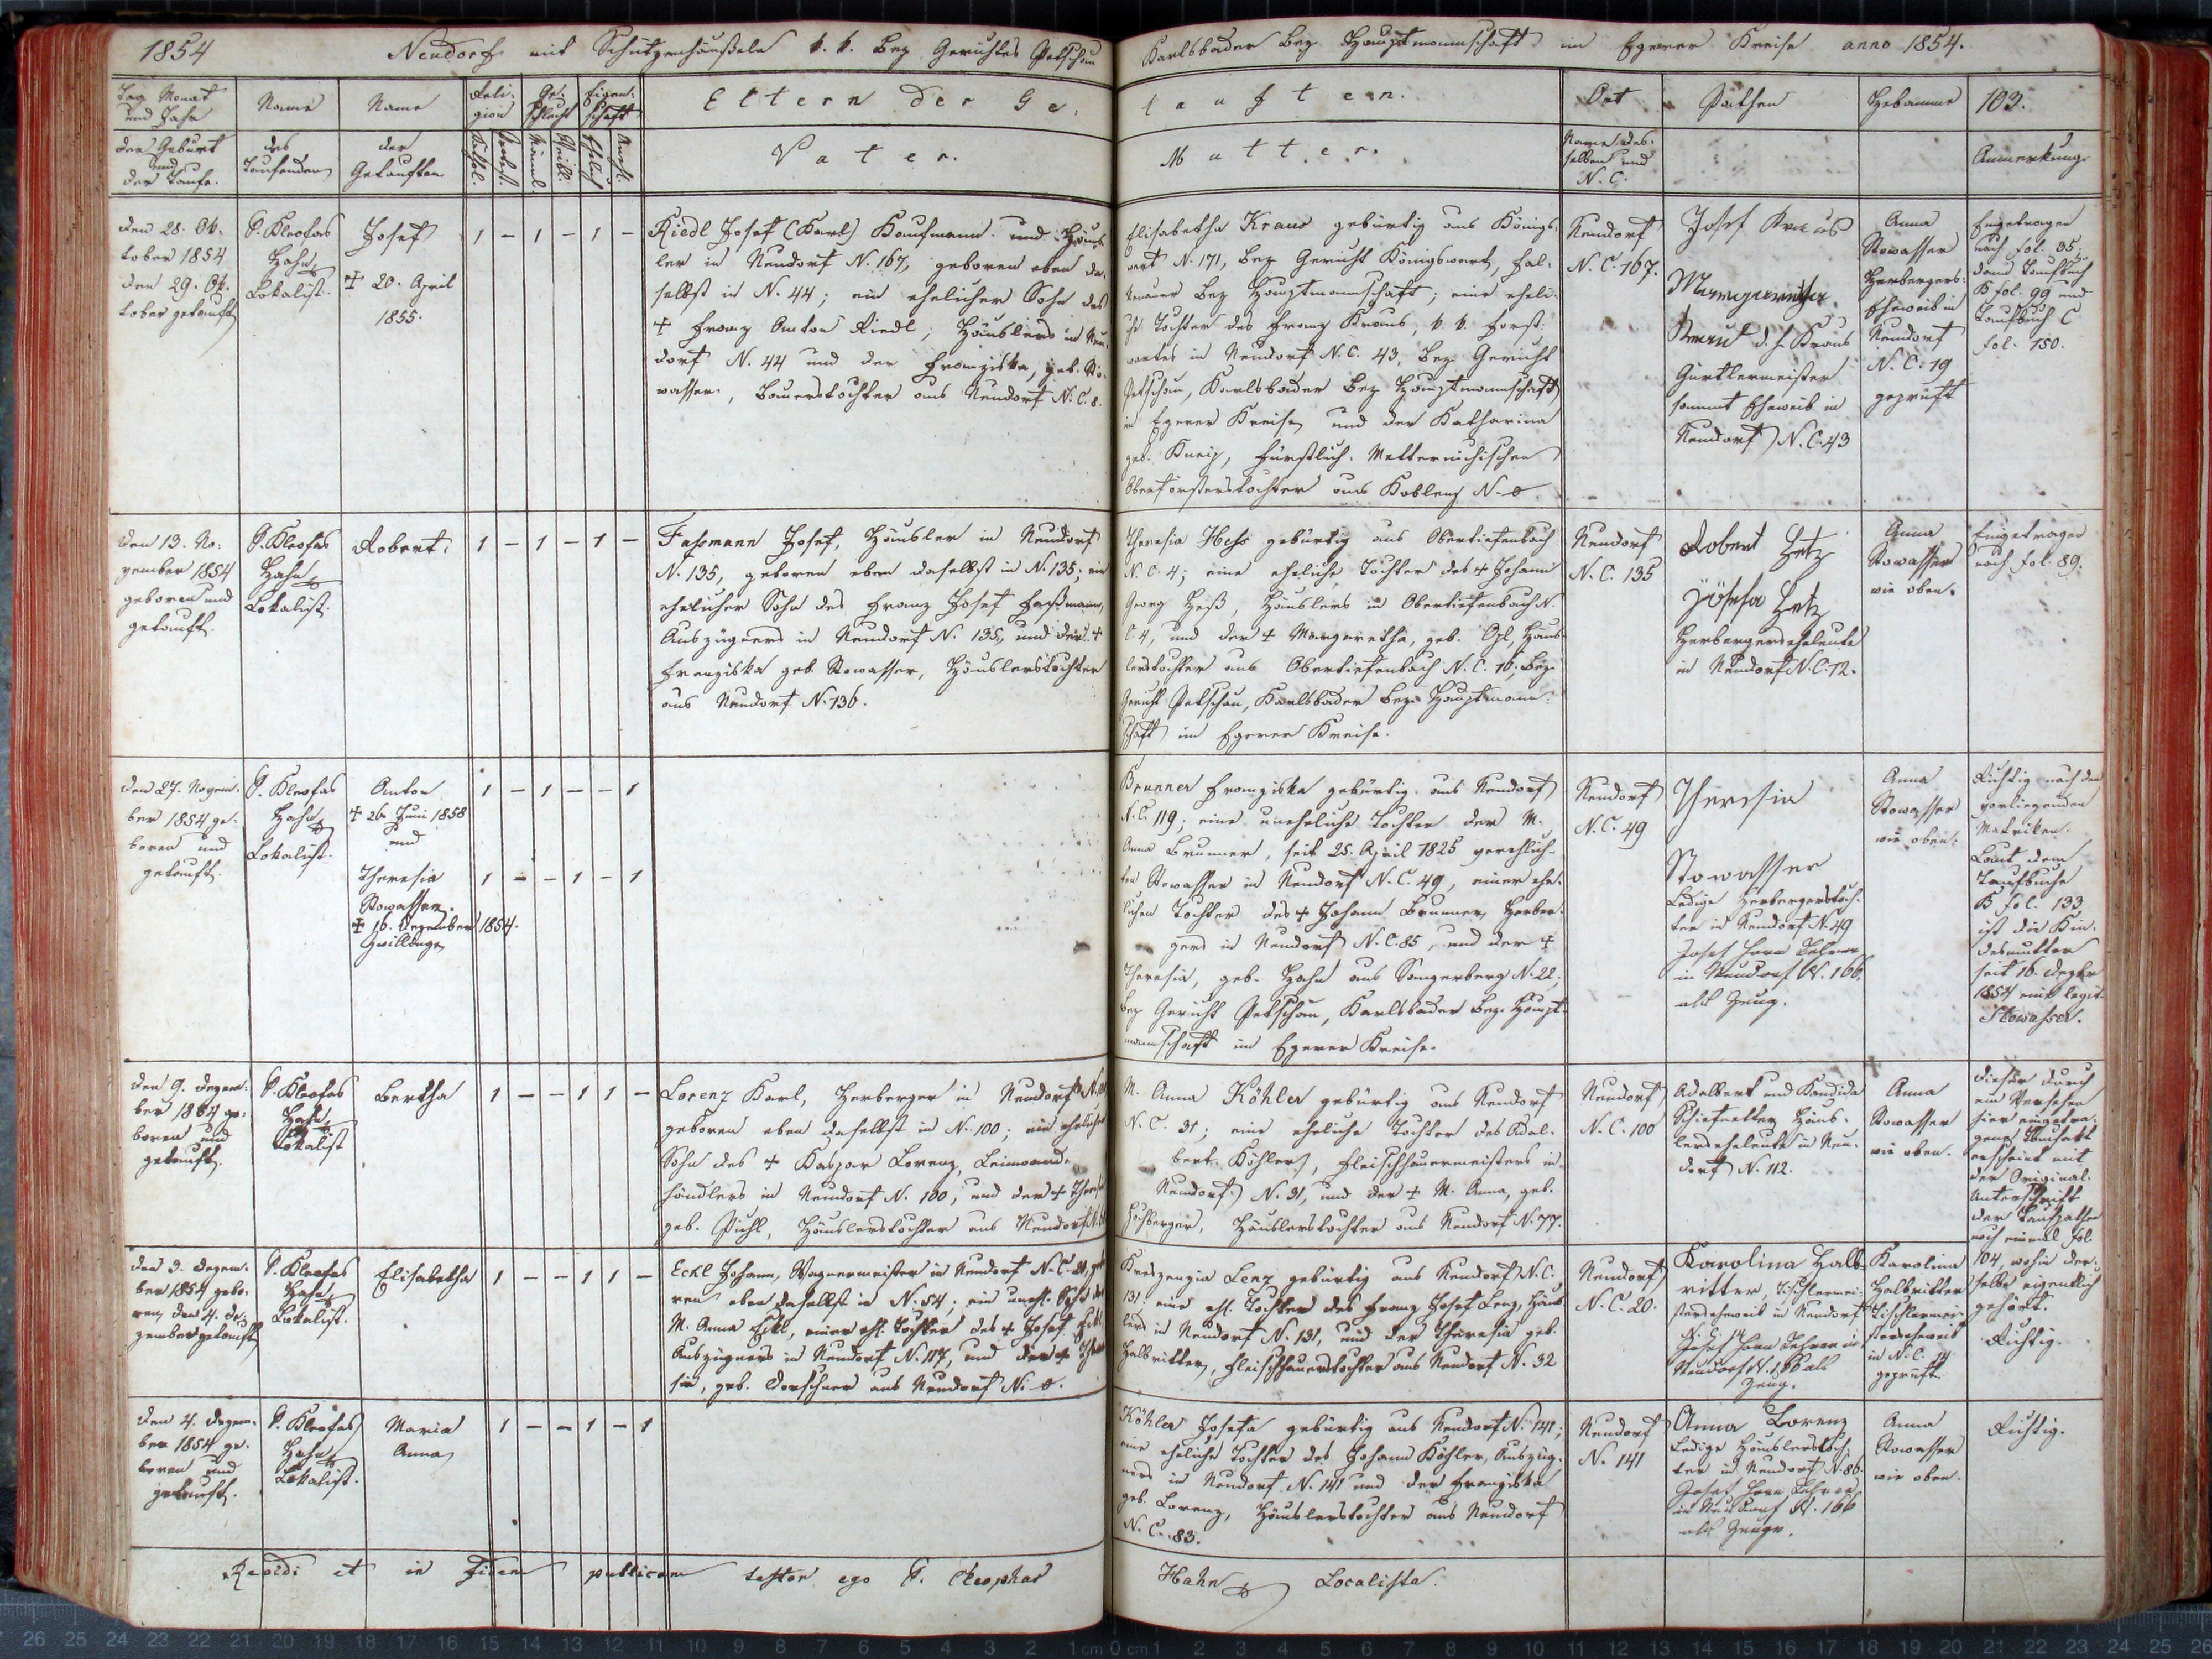 1854 Neudorf mit Schützenhäuseln k. k. Bez Gerichtes Petschau
Karlsbader Bez Hauptmannschaft im Egerer Kreise anno 1854.
Tag Monat
und Jahr
der Geburt
und
der Taufe.
Name
des
Taufenden
Name
der
Getauften
Religion
Kathol.
Protest.
Geschlecht
Männl.
Weibl.
Eigenschaft
Ehelich
Unehl.
Eltern der Ge-
tauften.
Vater.
Mutter.
Ort
Name des-
selben und
N. C.
Pathen
Hebamme
103.
Anmerkung
den 28. Ok-
tober 1854
den 29. Ok-
tober getauft
P. Kleofas
Hahn
Lokalist.
Josef
† 20. April
1855.
1 – 1 – 1 –
Riedl Josef (Karl) Kaufmann und Häus-
ler in Neudorf N. 167, geboren eben da-
selbst in N. 44; ein ehelicher Sohn des
† Franz Anton Riedl, Häuslers in Neu-
dorf N. 44 und der Franziska, geb. Sto-
wasser, Bauerstochter aus Neudorf N. C. 8.
Elisabetha Kraus gebürtig aus Königs-
wart N. 171, Bez Gericht Königswart, Fal-
kenauer Bez Hauptmannschaft; eine eheli-
che Tochter des Franz Kraus, k. k. Forst-
wartes in Neudorf N. C. 43, Bez Gericht
Petschau, Karlsbader Bez Hauptmannschaft
im Egerer Kreise und der Katharina
geb. Kneip, Fürstlich Metternichischen
Oberförsterstochter aus Koblenz N. o
Neudorf
N. C. 167.
Josef Kraus
Kraus
Gürtlermeister
sammt Eheweib in
Neudorf N. C. 43
Anna
Stowasser
Herbergers-
Eheweib in
Neudorf
N. C. 19
geprüft
Eingetragen
nach fol. 95;
Taufbuch
B fol. 99 und
Taufbuch C
fol. 150.
den 13. No-
vember 1854
geboren und
getauft.
P. Kleofas
Hahn
Lokalist.
Robert.
1 – 1 – 1 –
Fassmann Josef, Häusler in Neudorf
N. 135, geboren eben daselbst in N. 135; ein
ehelicher Sohn des Franz Josef Faßmann,
Auszügners in Neudorf N. 135, und der †
Franziska geb. Stowasser, Häuslerstochter
aus Neudorf N. 136.
Theresia Hess gebürtig aus Obertiefenbach
N. C. 4; eine eheliche Tochter des † Johann
Georg Heß, Häuslers in Obertiefenbach N.
C. 4, und der † Margaretha, geb. Opl, Häus-
lerstochter aus Obertiefenbach N. C. 16, Bez
Gericht Petschau, Karlsbader Bez Hauptmann-
schaft im Egerer Kreise.
Neudorf
N. C. 135
Robert Hetz
Josefa Hetz
Herbergerseheleute
in Neudorf N. C. 12.
Anna
Stowasser
wie oben.
Eingetragen
nach fol. 89.
den 27. Novem-
ber 1854 ge-
boren und
getauft.
P. Kleofas
Hahn
Lokalist.
Anton
† 26 Juni 1858
und
Theresia
Stowasser.
† 16. Dezember 1854.
Zwillinge
1 – 1 – – 1
1 – – 1 – 1
Brunner Franziska gebürtig aus Neudorf
N. C. 119; eine uneheliche Tochter der M.
Anna Brunner, seit 25. April 1825 verehlich-
ten Stowasser in Neudorf N. C. 49, einer ehe-
lichen Tochter des † Johann Brunner, Herber-
gers in Neudorf N. C. 85, und der †
Theresia, geb. Hahn aus Sangerberg N. 22;
Bez Gericht Petschau, Karlsbader Bez Haupt-
mannschaft im Egerer Kreise.
Neudorf
N. C. 49
Theresia
Stowasser
Ledige Herbergerstoch-
ter in Neudorf N. 49
Josef Horn Lehrer
in Neudorf N. 166.
als Zeug.
Anna
Stowasser
wie oben.
Richtig nach den
vorliegenden
Matriken.
Laut dem
Taufbuche
B fol. 133
ist die Kin-
desmutter
seit 16. Dezbr
1854 eine legit.
Stowasser.
den 9. Dezem-
ber 1854 ge-
boren und
getauft.
P. Kleofas
Hahn
Lokalist
Bertha
1 – – 1 1 –
Lorenz Karl, Herberger in Neudorf N. 100
geboren eben daselbst in N. 100; ein ehelicher
Sohn des † Kaspar Lorenz, Leinwand-
händlers in Neudorf N. 100, und der † Theresia
geb. Pichl, Häuslerstochter aus Neudorf
M. Anna Köhler gebürtig aus Neudorf
N. C. 31; eine eheliche Tochter des Adal-
bert Köhler, Fleischhauermeisters in
Neudorf N. 31, und der † M. Anna, geb.
Hochberger, Häuslerstochter aus Neudorf N. 77.
Neudorf
N. C. 100
Adalbert und Kandida
Schiefnetter Häus-
lerseheleute in Neu-
dorf N. 112.
Anna
Stowasser
wie oben.
Dieser durch
ein Versehen
hier eingetra-
gene Taufakt
erscheint mit
der Original-
Unterschrift
der Taufpathen
noch einmal fol.
104, wohin der-
selbe eigentlich
gehört.
den 3. Dezem-
ber 1854 gebo-
ren, den 4. De-
zember getauft
P. Kleofas
Hahn
Lokalist.
Elisabetha
1 – – 1 1 –
Eckl Johann, Wagnermeister in Neudorf N. C. 20, gebo-
ren eben daselbst in N. 54; ein unehl. Sohn der
M. Anna Eckl, einer ehl. Tochter des † Josef Eckl,
Auszügners in Neudorf N. 117, und der † There-
sia, geb. Dorschner aus Neudorf N. o.
Kreszenzia Lenz gebürtig aus Neudorf N. C.
131, eine ehl. Tochter des Franz Josef Lenz, Häus-
lers in Neudorf N. 131, und der Theresia geb.
Halbritter, Fleischhauerstochter aus Neudorf N. 32
Neudorf
N. C. 20.
Karolina Halb-
ritter, Tischlermei-
sterseheweib in Neudorf
N. C. 14
Josef Horn Lehrer in
Neudorf N. 166 als
Zeug.
Karolina
Halbritter
Tischlermei-
sterseheweib
in N. C. 14
geprüft
Richtig.
den 4. Dezem-
ber 1854 ge-
boren und
getauft.
P. Kleofas
Hahn
Lokalist.
Maria
Anna
1 – – 1 – 1
Köhler Josefa gebürtig aus Neudorf N. 141;
eine eheliche Tochter des Johann Köhler, Auszüg-
ners in Neudorf N. 141 und der Franziska
geb. Lorenz, Häuslerstochter aus Neudorf
N. C. 83.
Neudorf
N. 141
Anna Lorenz
Ledige Häuslerstoch-
ter in Neudorf N. 86.
Josef Horn Lehrer
in Neudorf N. 166
als Zeuge.
Anna
Stowasser
wie oben.
Richtig.
et in fidem publicam testor ego P. Cleophas
Hahn Localista.